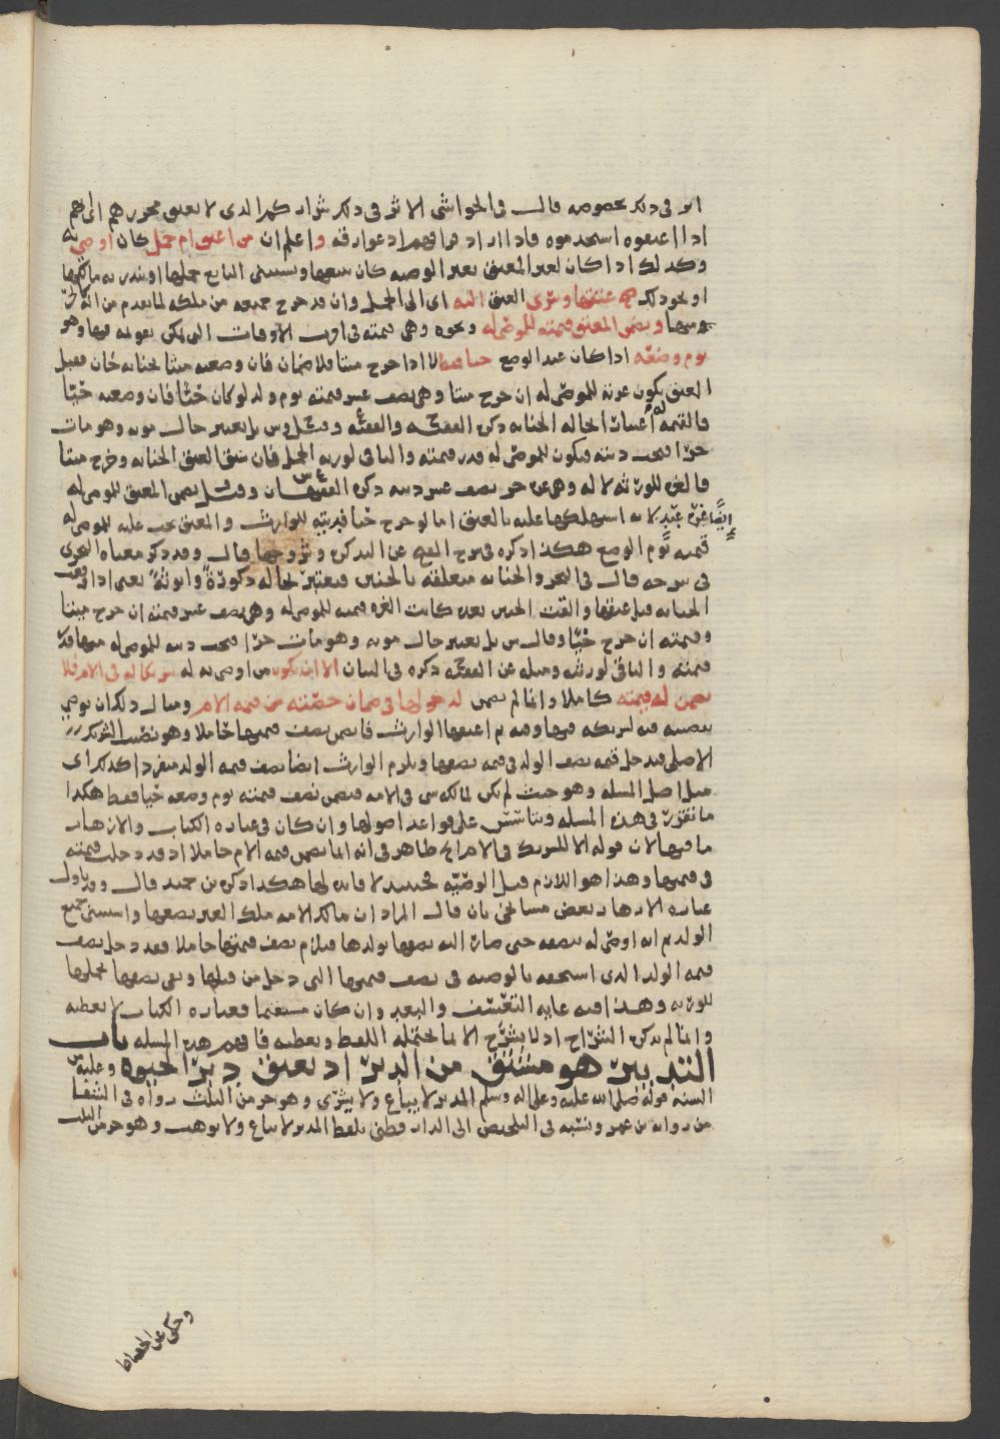 اثر في ذلك بخصوصه قال في الحواشي الاثر في ذلك
اذا اعتقوه استخدموه فاذا اراد فراقهم ادعوا رقه واعلم ان من اعتق ام حمل كان اوصى به
وكذلك اذا كان لغير المعتق بغير الوصيه كان يبيعها ويستثني البايع حملها او ينذر به مالكها
او نحو ذلك عتقها وسرى العتق اليه اي الى الحمل وان قد خرج جميعه من ملكه لما تقدم من
ويضمن المعتق قيمته للموصى له ونحوه وهي قيمته في اقرب الاوقات التي يمكن تقويمه فيها وهو
يوم وضعه اذا كان عند الوضع حيا فقط لا اذا خرج ميتا فلا ضمان فان وضعته ميتا بجنايه فان قبل
العتق يكون غرته للموصى له ان خرج ميتا وهي نصف عشر قيمته يوم ولد لو كان حيا فان وضعته حيا
فالقيمه له اعتبارا بحاله الجنايه ذكره الفقيه وقيل بل يعتبر حال موته وهو مات
حرا فتجب ديته فيكون للموصى له قدر قيمته والباقي لورثه الحمل فان سبق العتق الجنايه وخرج ميتا
فالغره للورثه لا له وهي غره حر نصف عشر ديته ذكره الفقيهان وقيل يضمن المعتق للموصى له
ايضا غره عبد لانه استهلكها عليه بالعتق اما لو خرج حيا فديته للوارث والمعتق يجب عليه للموصى له
قيمته يوم الوضع هكذا ذكره في شرح الفتح عن التذكره وشروحها قال وقد ذكر معناه البحري
في شرحه قال في البحر والجنايه متعلقه بالجنين فيعتبر بحاله ذكورة وانوثة يعني اذا وقعت
الجنايه قبل عتقها والقت الجنين بعده كانت الغره قيمته للموصى له وهي نصف عشر قيمته ان خرج ميتا
وقيمته ان خرج حيا وقال س بل يعتبر حال موته وهو مات حرا فتجب ديته للموصى له منها قدر
قيمته والباقي لورثته ومثله عن الفقيه ذكره في البيان الا ان يكون من اوصى به له شريكا له في الام فلا
يضمن له قيمته كاملا وانما لم يضمن لدخولها في ضمان حصته من قيمه الام ومثال ذلك ان يوصي
بنصيبه فيه لشريكه فيها وفيه ثم اعتقها الوارث فانه يضمن نصف قيمتها حاملا وهو نصيب الشريك
الاصلي فيدخل قيمه نصف الولد في قيمه نصفها ويلزم الوارث ايضا نصف قيمه الولد منفردا كذلك اي
مثل اصل المسله وهو حيث لم يكن لمالكه شي في الامه فيضمن نصف قيمته يوم وضعه حيا فقط هكذا
ما تقرر في هذه المسله ويتاسس على قواعد اصولها وان كان في عباره الكتاب والازهار
ما فيها لان قوله الا للشريك في الام الخ ظاهر في انه انما يضمن قيمه الام حاملا اذ قد دخلت قيمته
في قيمتها وهذا هو اللازم قبل الوصيه فحينئذ لا فايده لها هكذا ذكره بن حميد قال وقد تاول
عباره الازهار بعض مشايخي بان قال المراد ان مالك الامه ملك الغير نصفها واستثنى جميع
الولد ثم انه اوصى له بنصفه حتى صار اليه نصفها بولدها فيلزم نصف قيمتها حاملا فقد دخل نصف
قيمه الولد الذي استحقه بالوصيه في نصف قيمتها التي دخل من قبلها وبقي نصفها بحملها
للورثه وهذا فيه غايه التعسف والبعد وان كان مستقيما فعباره الكتاب لا تعطيه
وانما لم يذكره الشراح اذ لا يشرح الا بما يحتمله اللفظ ويعطيه فافهم هذه المسله باب
التدبير هو مشتق من الدبر اذ يعتق دبر الحيوه وعليه من
السنه قوله صلى الله عليه وعلى اله وسلم المدبر لا يباع ولا يشترى وهو حر من الثلث رواه في الشفا
من روايه بن عمر ونسبه في التلخيص الى الدار قطني بلفظ المدبر لا يباع ولا يوهب وهو حر من الثلث
وحكى عن